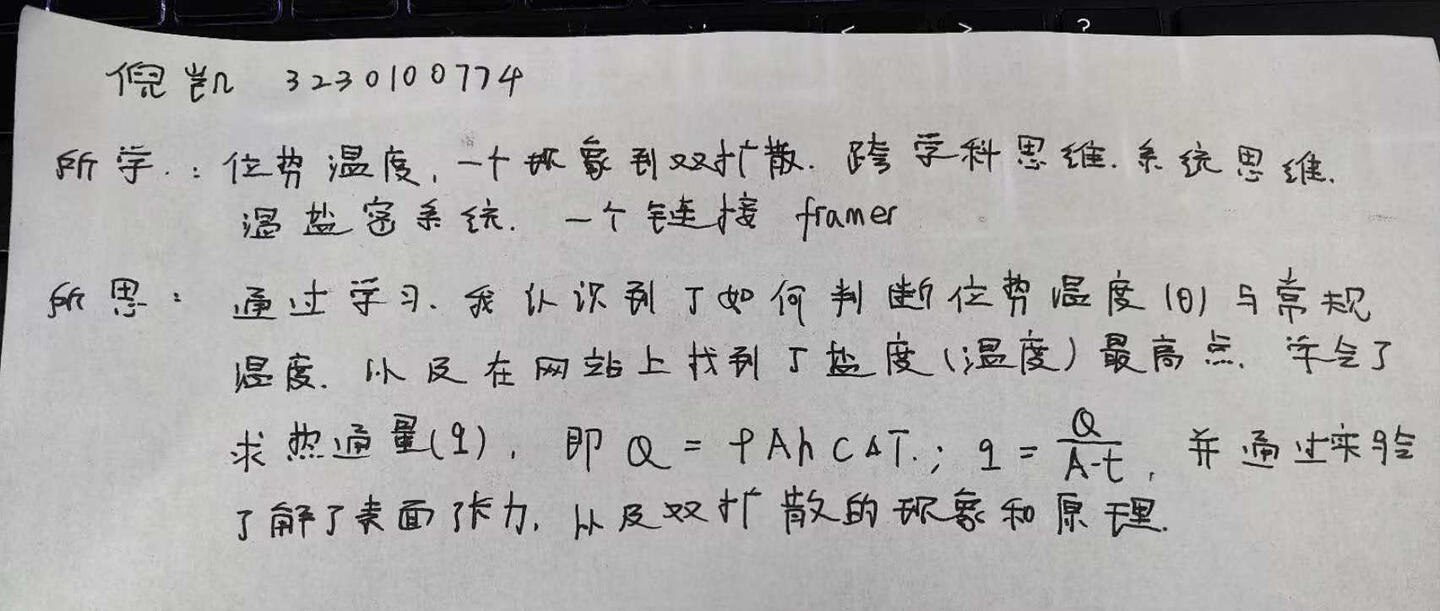 倪凯 3230100774
所学.:位势温度,一个现象到双扩散.跨学科思维.系统思维.
温盐密系统. 一个链接 framer
所思: 通过学习.我认识到了如何判断位势温度(θ)与常规
温度.以及在网站上找到了盐度(温度)最高点. 学会了
求热通量(q), 即 Q = ρAhCΔT.; q = Q/A·t, 并通过实验
了解了表面张力,以及双扩散的现象和原理.